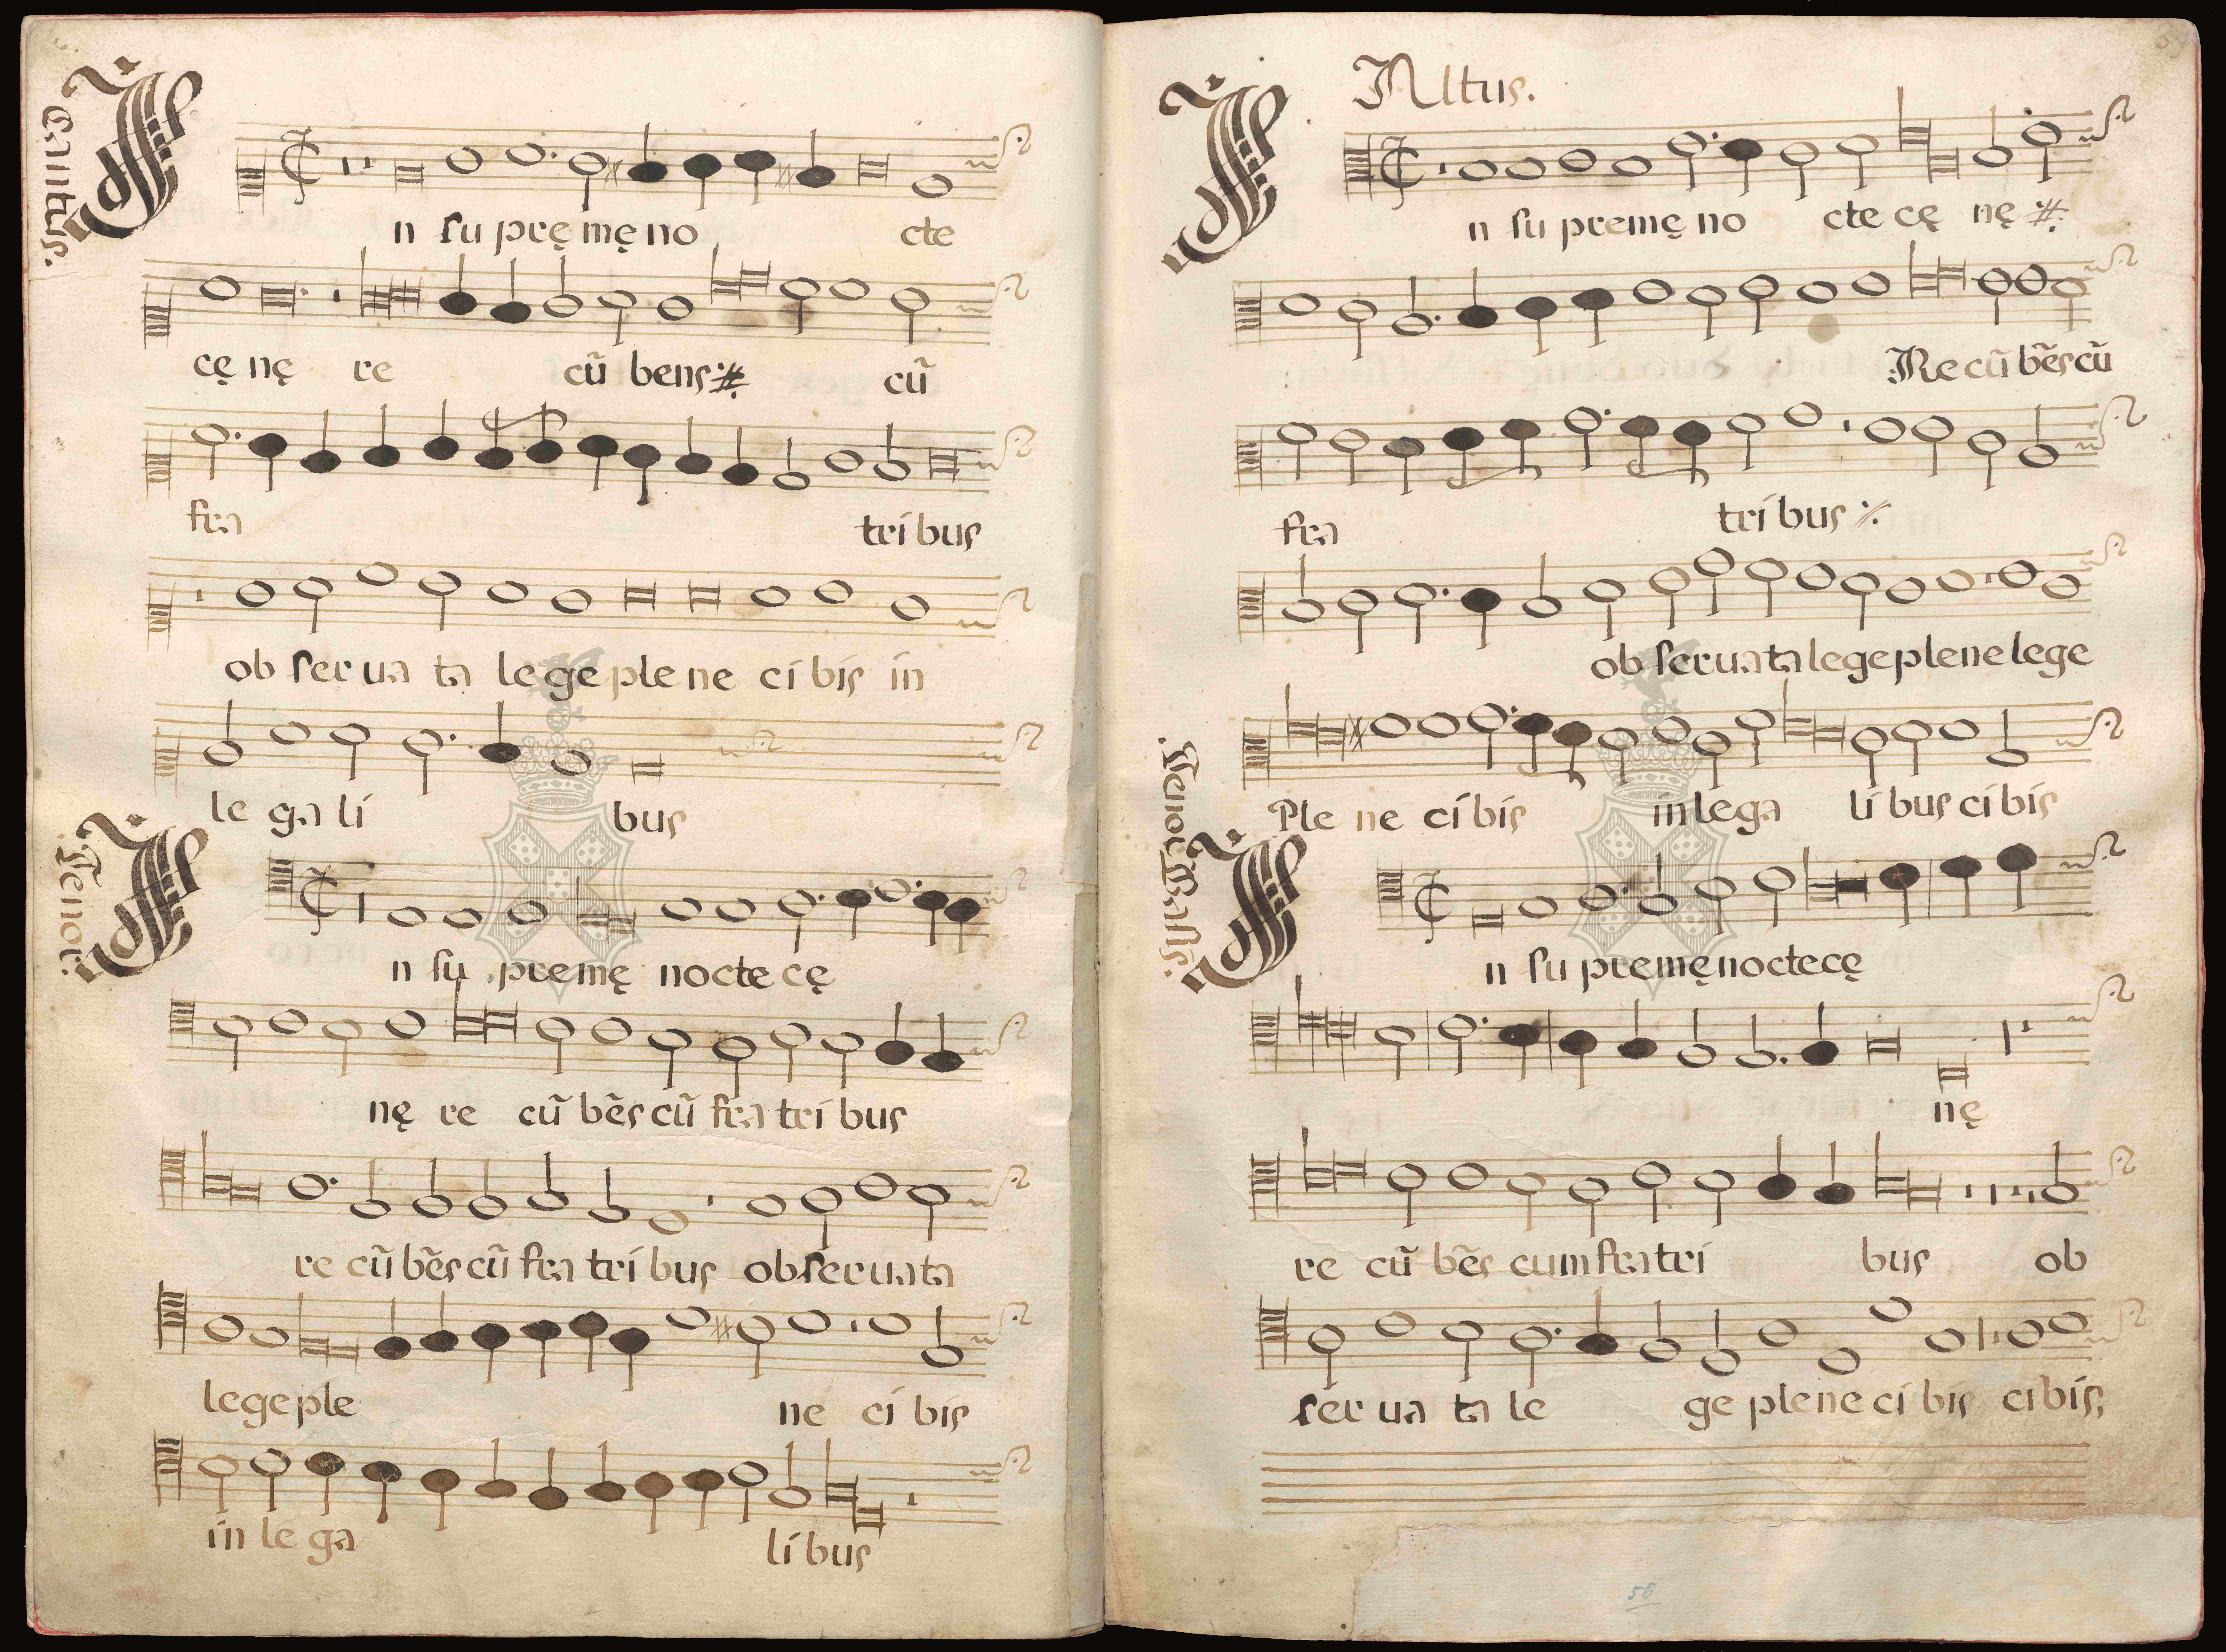 Cantus.
In su prę mę no cte
cę nę re cũ bens :#: cũ
fra tri bus
ob ser ua ta le ge ple ne ci bis in
le ga li bus
Tenor.
In su pre mę no cte cę
nę re cũ bẽs cũ fra tri bus
re cũ bẽs cũ fra tri bus ob ser ua ta
le ge ple ne ci bis
in le ga li bus
Altus.
In su pre mę no cte cę nę :#:
Re cũ bẽs cũ
fra tri bus ·/.
ob ser ua ta le ge ple ne le ge
Ple ne ci bis in le ga li bus ci bis
Tenor Bassis.
In su pre mę no cte cę
nę
re cũ bẽs cum fra tri bus ob
ser ua ta le ge ple ne ci bis ci bis;
58